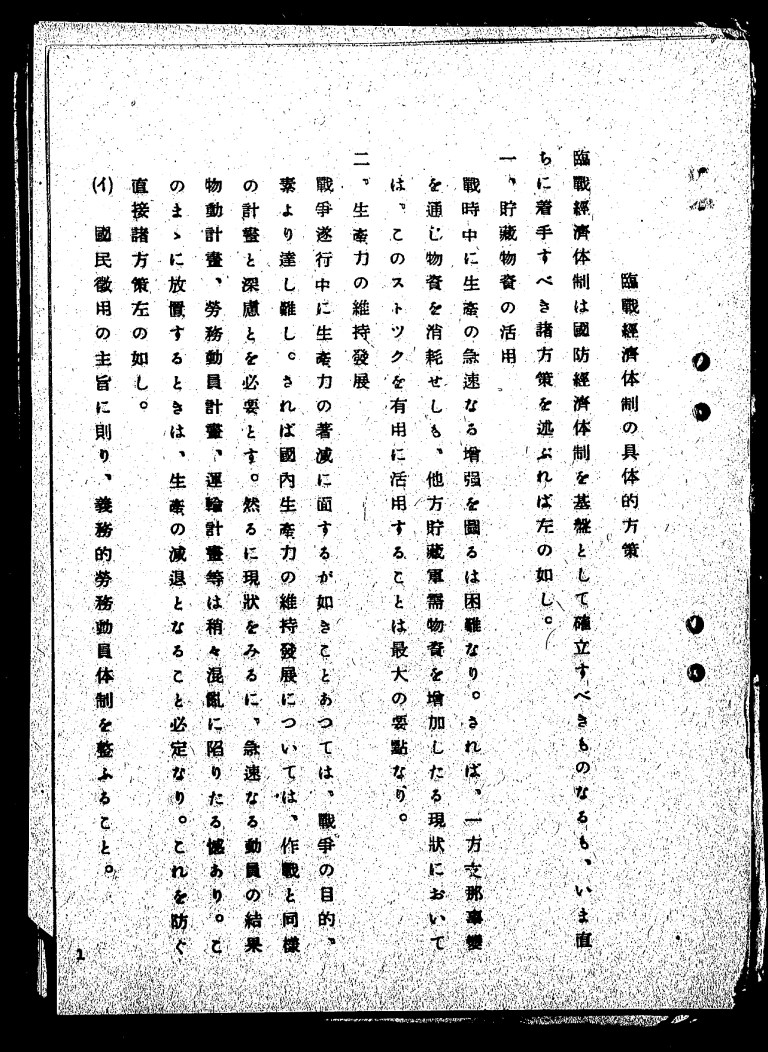 臨戰經濟体制の具体的方策
臨戰經濟体制は國防經濟体制を基盤として確立すべきものなるも、いま直
ちに着手すべき諸方策を述ぶれば左の如し。
一、貯藏物資の活用
戰時中に生產の急速なる增强を圖るは困難なり。されば、一方支那事變
を通じ物資を消耗せしも、他方貯藏軍需物資を增加したる現狀において
は。このストツクを有用に活用することは最大の要點なり。
二。生產力の維持發展
戰爭遂行中に生產力の著減に面するが如きことあつては、戰爭の目的、
素より達し難し。されば國內生產力の維持發展については、作戰と同樣
の計畫と深慮とを必要とす。然るに現狀をみるに、急速なる動員の結果
物動計畫、勞務動員計畫、運輸計畫等は稍々混亂に陷りたる憾あり。こ
のまゝに放置するときは、生產の減退となること必定なり。これを防ぐ
直接諸方策左の如し。
(イ) 國民徵用の主旨に則り、義務的勞務動員体制を整ふること。
1